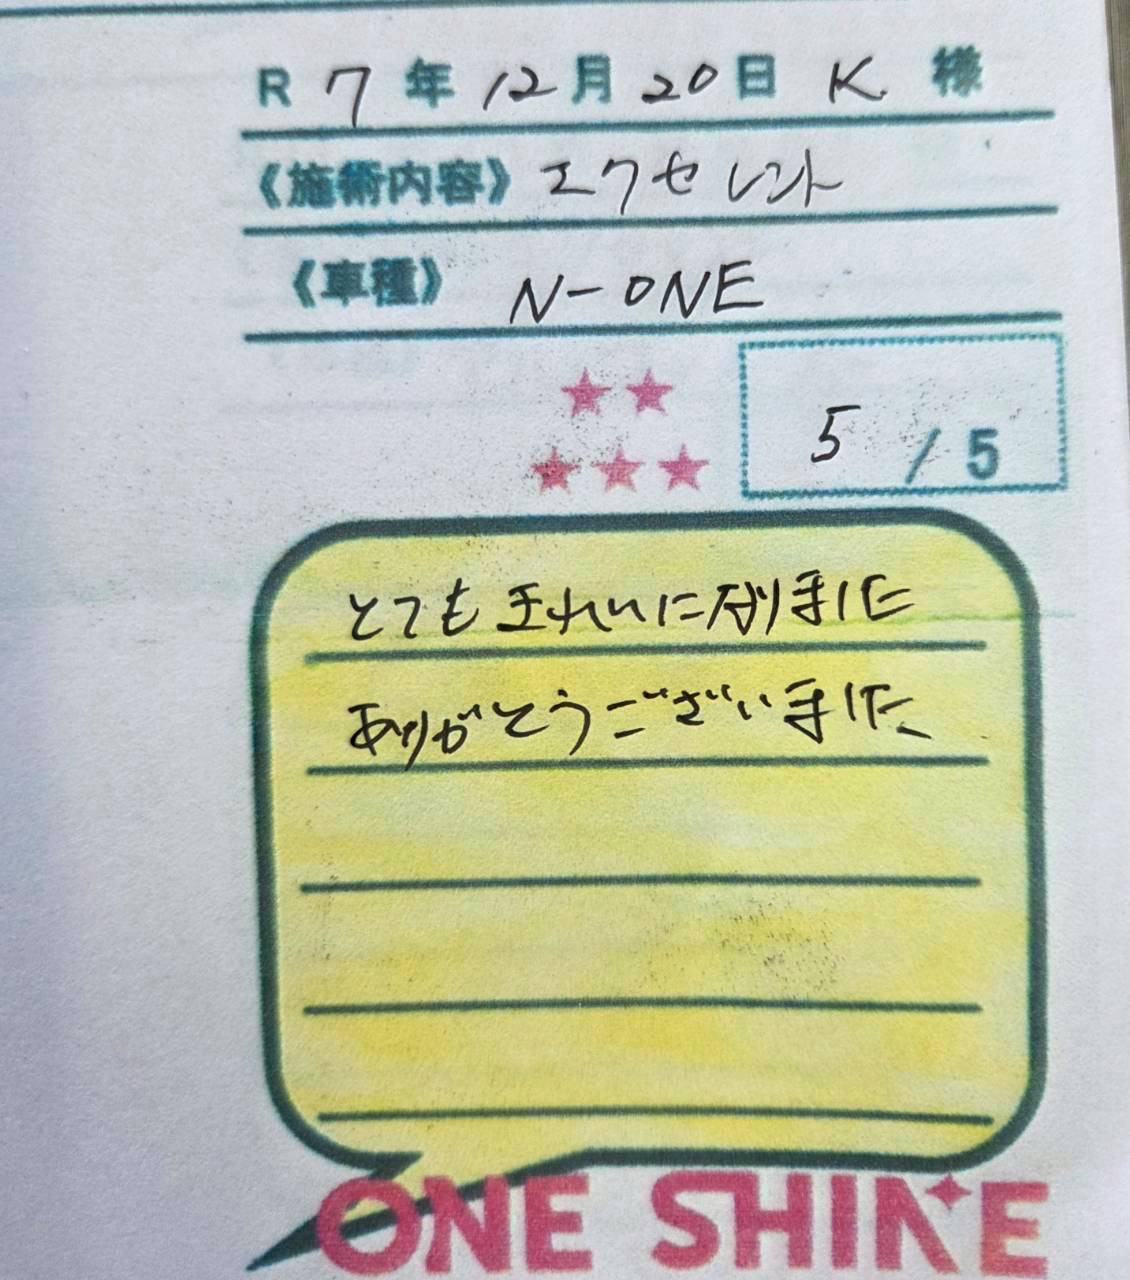 R 7年 12月 20日 K 様
《施術内容》 エクセレント
《車種》 N-ONE
5 / 5
とてもきれいになりました
ありがとうございました
ONE SHINE